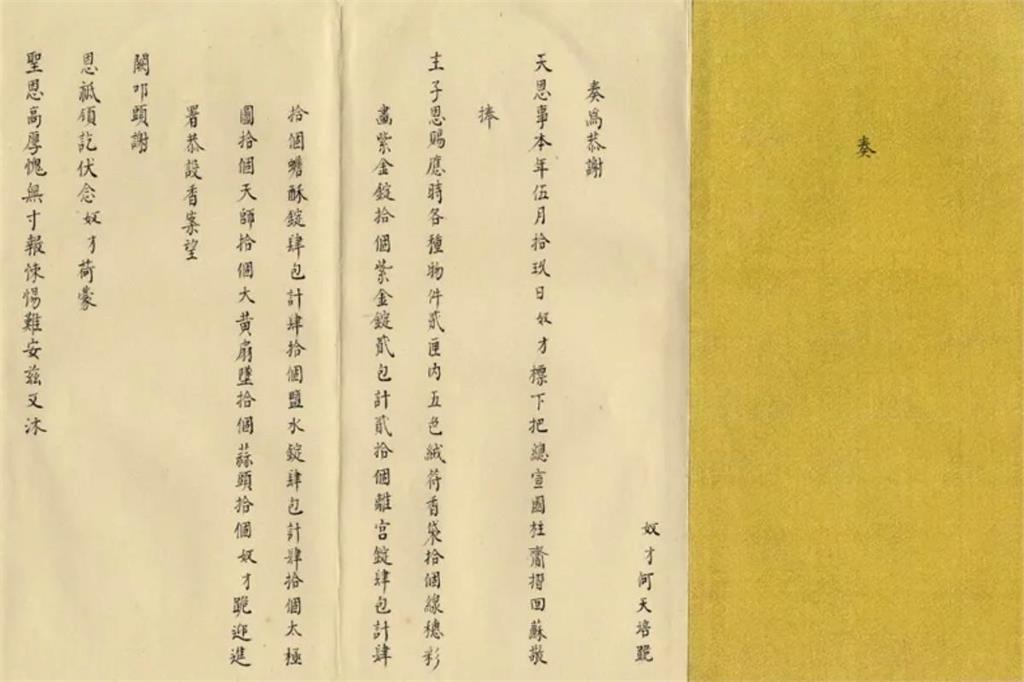 奏
奴才何天培跪
奏爲恭謝
天恩事本年伍月拾玖日奴才標下把總宣國柱齎摺回蘇敬
捧
主子恩賜應時各種物件貳匣内五色絨符香袋拾個線穗彩
畫紫金錠拾個紫金錠貳包計貳拾個離宮錠肆包計肆
拾個蟾酥錠肆包計肆拾個鹽水錠肆包計肆拾個太極
圖拾個天師拾個大黄扇墜拾個蒜頭拾個奴才跪迎進
署恭設香案望
闕叩頭謝
恩祗領訖伏念奴才荷蒙
聖恩高厚愧無寸報悚惕難安兹又沐